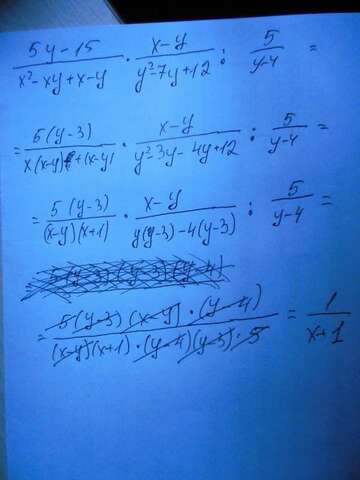 (5y-15)/(x²-xy+x-y) · (x-y)/(y²-7y+12) : 5/(y-4) =
= 5(y-3)/(x(x-y)+(x-y)) · (x-y)/(y²-3y-4y+12) : 5/(y-4) =
= 5(y-3)/((x-y)(x+1)) · (x-y)/(y(y-3)-4(y-3)) : 5/(y-4) =
= 5(y-3)(x-y)·(y-4)/((x-y)(x+1)·(y-4)(y-3)·5) = 1/(x+1)